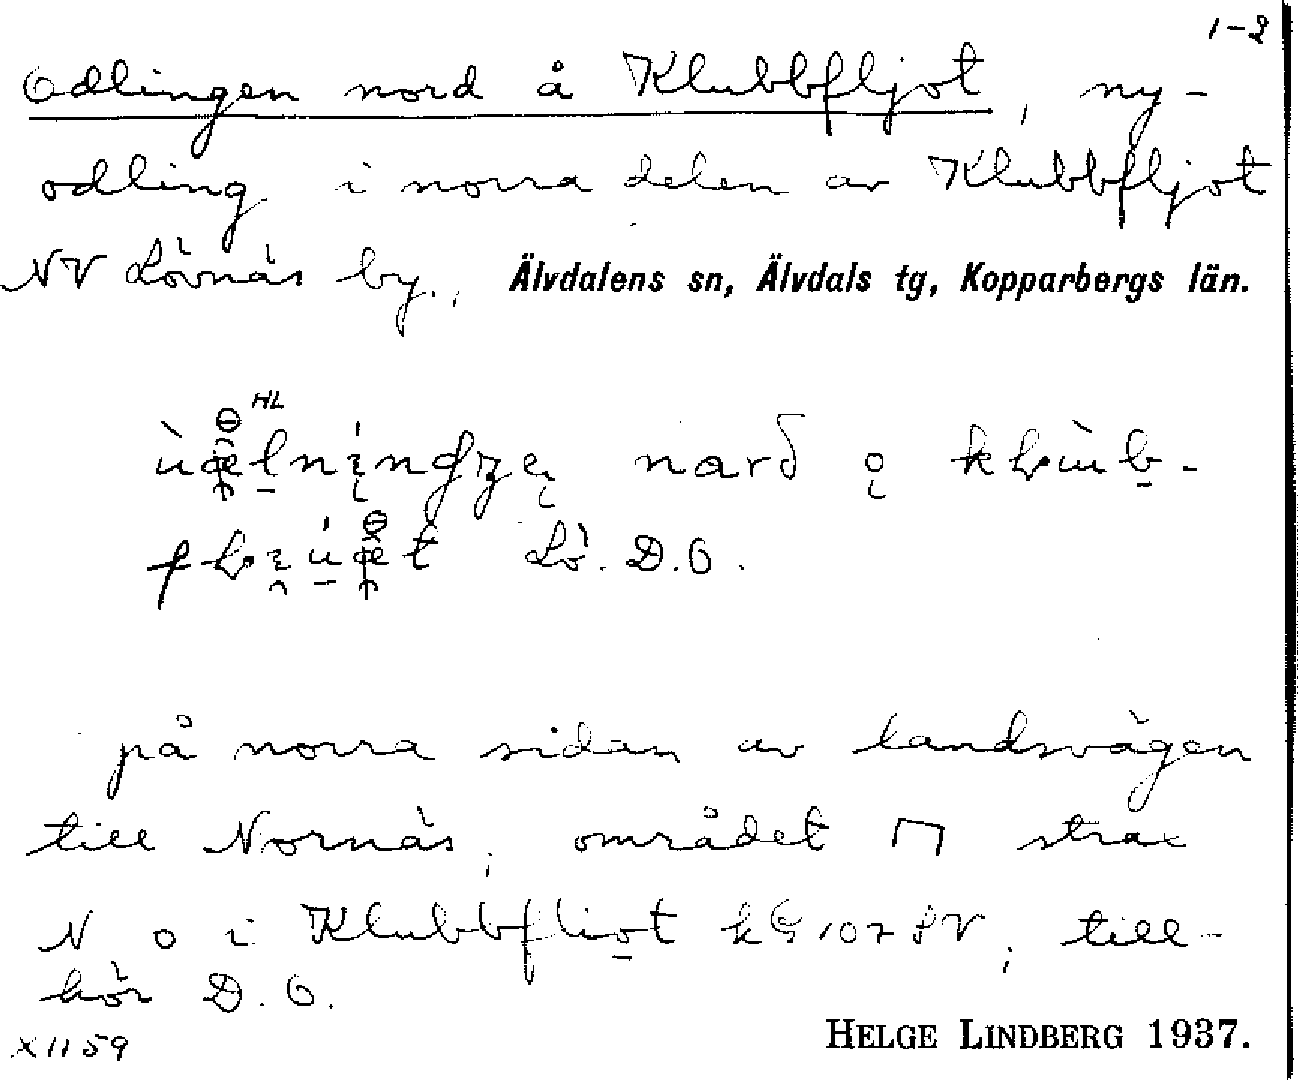 1-2
Odlingen nord å Klubbfljot, ny-
odling i norra delen av Klubbfljot
NV Lövnäs by., Älvdalens sn, Älvdals tg, Kopparbergs län.
HL
nard
Lö. D.O.
på norra sidan av landsvägen
till Nornäs, området ⊓ strax
N o i Klubbfliot kG 107 SV, till-
hör D.O.
X 1159
HELGE LINDBERG 1937.